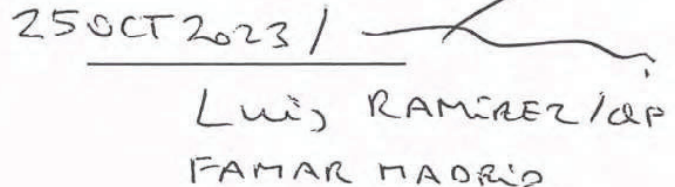 25 OCT 2023 /
Luis RAMIREZ/QP
FAMAR MADRID